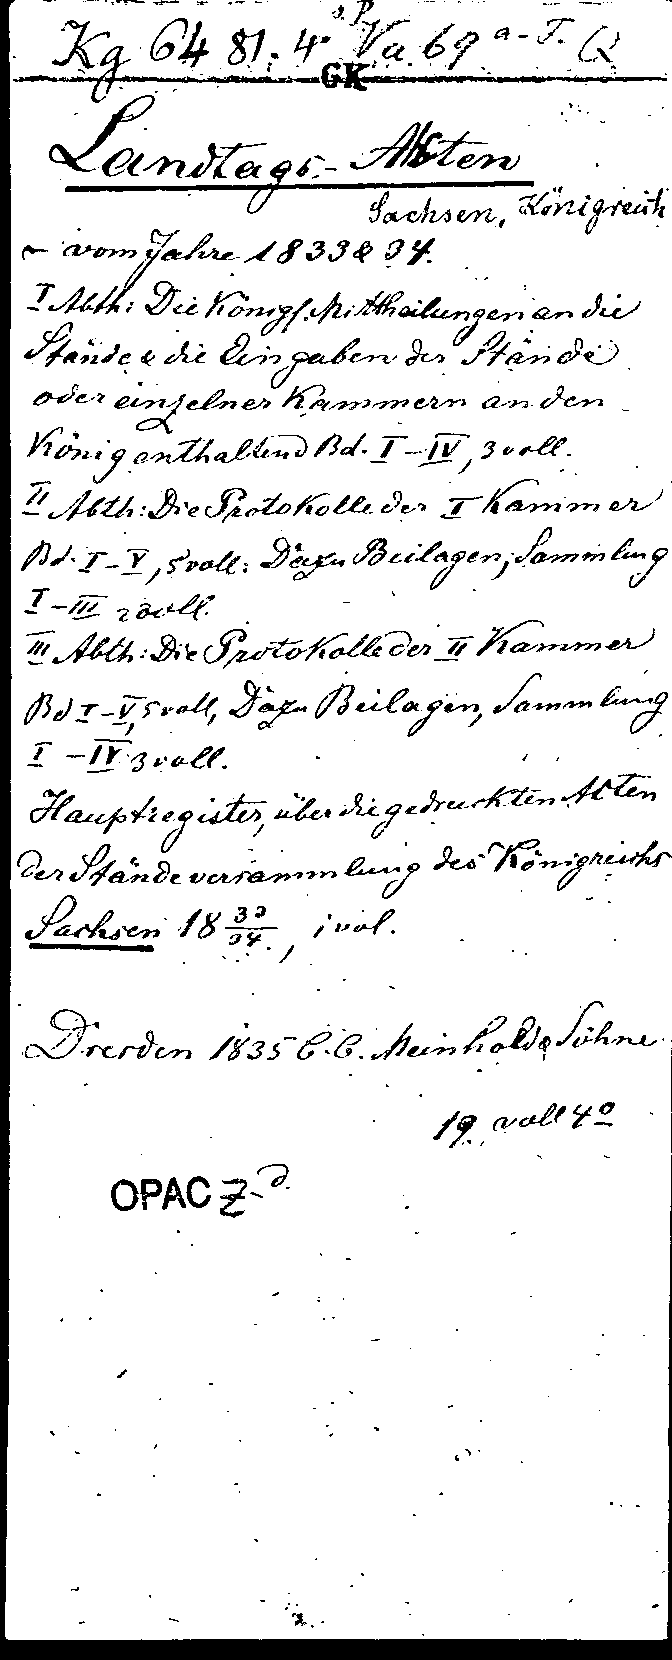 Kg 6481. 4° Va 69 a-T. Q
GK
Landtags-Akten
Sachsen, Königreich
- vom Jahre 1833 & 34.
I Abth: Die Königl. Mittheilungen an die
Stände & die Eingaben der Stände
oder einzelner Kammern an den
König enthaltend Bd. I-IV, 3 voll.
II Abth: Die Protokolle der I Kammer
Bd. I-V, 5 voll: Dazu Beilagen, Sammlung
I-III 2 voll.
III Abth: Die Protokolle der II Kammer
Bd I-V, 5 voll, Dazu Beilagen, Sammlung
I-IV 3 voll.
Hauptregister, über die gedruckten Akten
der Ständeversammlung des Königreichs
Sachsen 18 33/34., 1 vol.
Dresden 1835 C. C. Meinhold & Söhne
19 voll 4°
OPAC